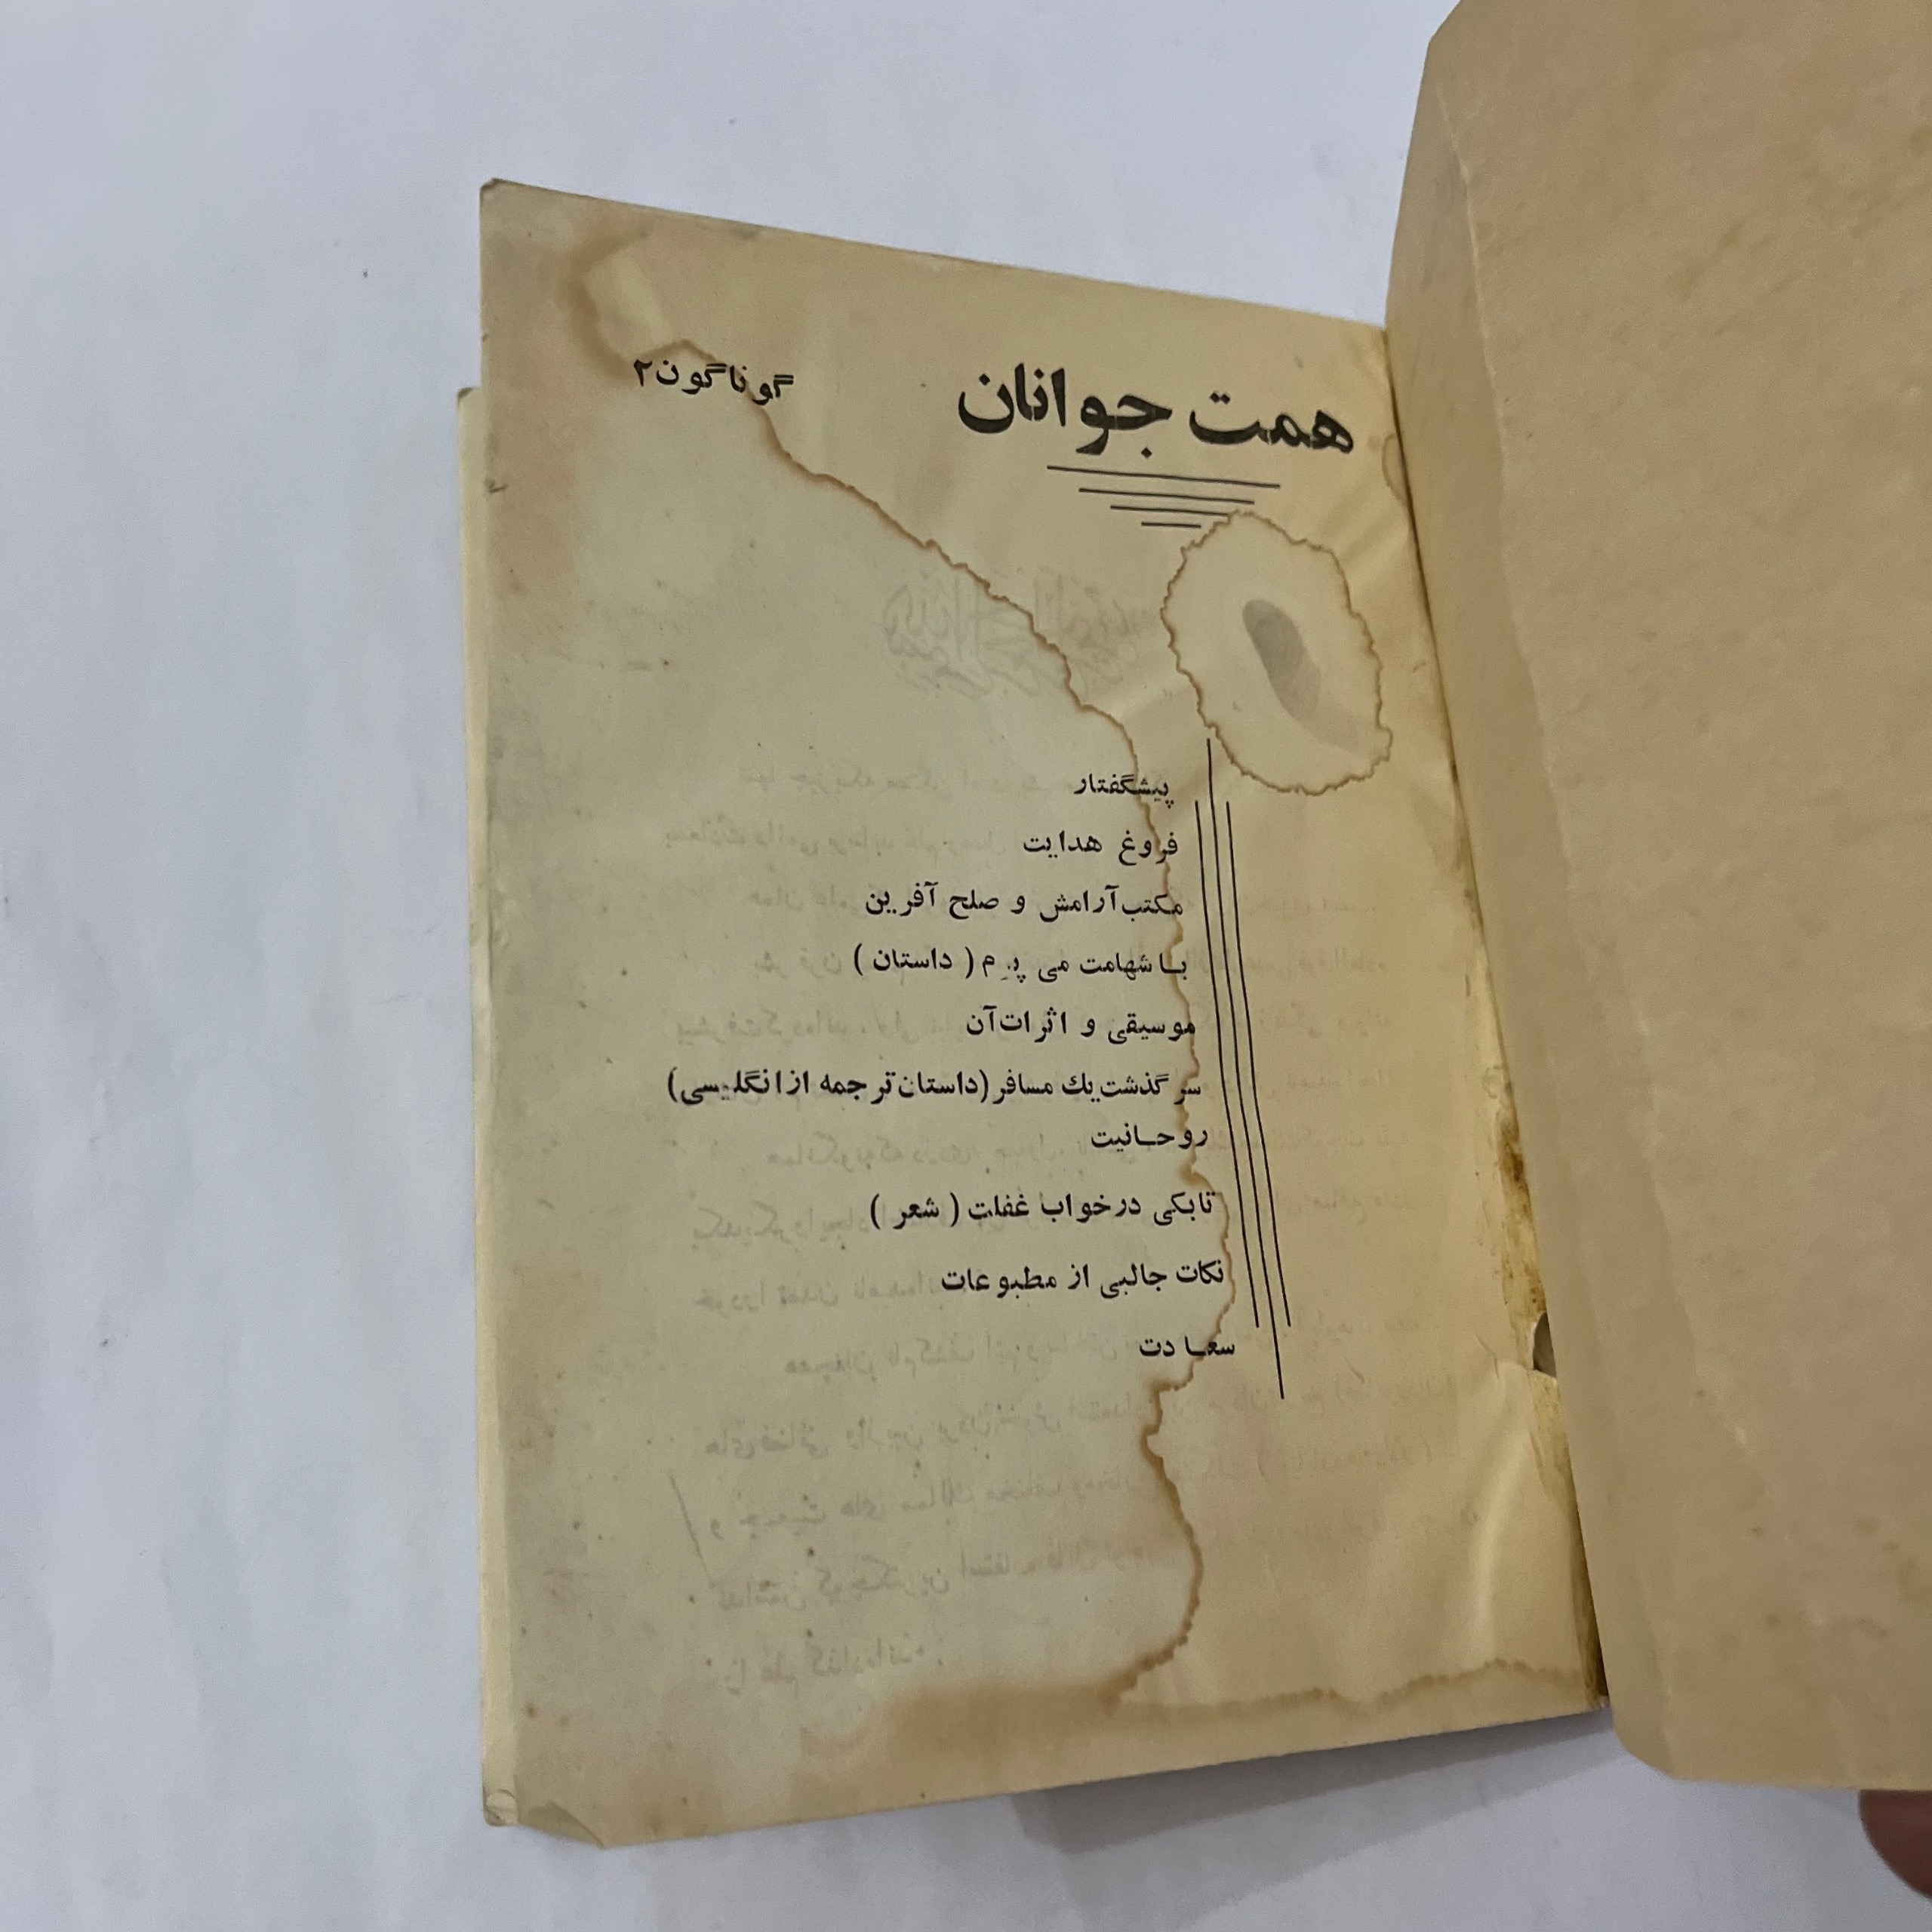 همت جوانان
گوناگون۲
پیشگفتار
فروغ هدایت
مکتب آرامش و صلح آفرین
با شهامت می ( داستان )
موسیقی و اثرات آن
سرگذشت یك مسافر (داستان ترجمه از انگلیسی)
روحانیت
تابکی در خواب غفلت ( شعر )
نکات جالبی از مطبوعات
سعادت